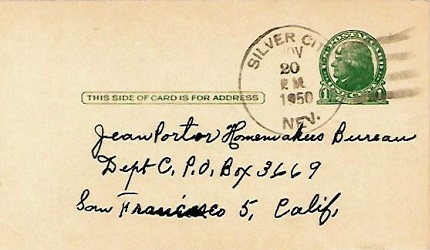 SILVER CITY
NOV
20
P.M.
1950
NEV.
THIS SIDE OF CARD IS FOR ADDRESS
Jean Porter Homemakers Bureau
Dept C, P.O, Box 3669
San Francisco 5, Calif.